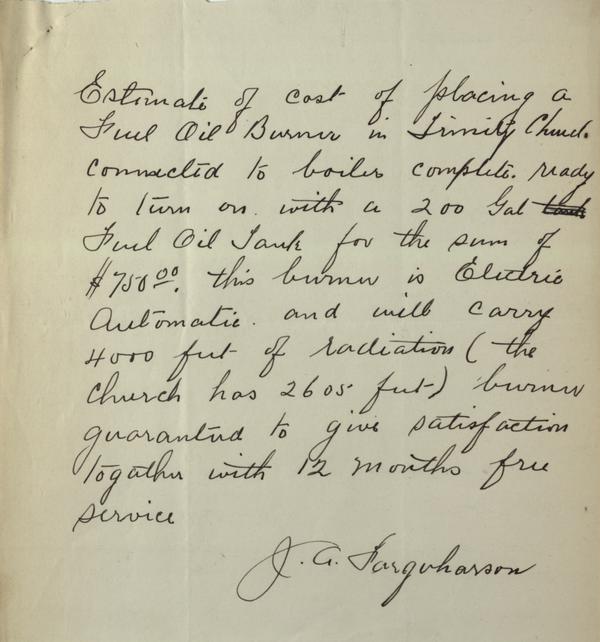 Estimate of cost of placing a
Fuel Oil Burner in Trinity Church.
connected to boiler complete. ready
to turn on. with a 200 Gal tank
Fuel Oil Tank for the sum of
$750.00. this burner is Electric
Automatic. and will carry
4000 feet of radiation (the
church has 2605 feet) burner
guaranteed to give satisfaction
together with 12 months free
service
J. A. Farquharson